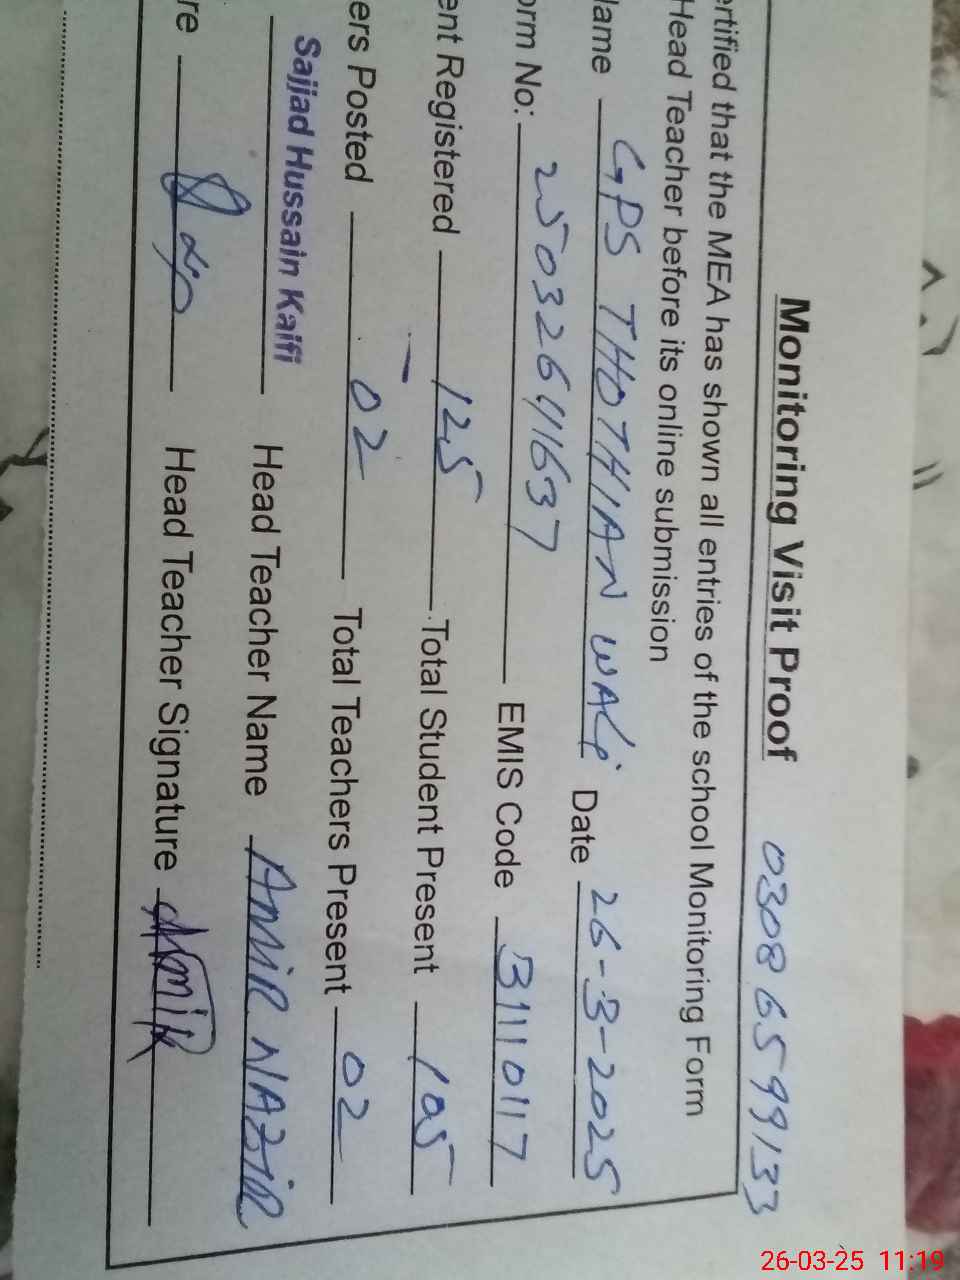 Monitoring Visit Proof 03086599133
ertified that the MEA has shown all entries of the school Monitoring Form
Head Teacher before its online submission
Name GPS THOTHIAN WALI Date 26-3-2025
orm No: 250326411637 EMIS Code 31110117
ent Registered 125 Total Student Present 105
ers Posted 02 Total Teachers Present 02
Sajjad Hussain Kaifi Head Teacher Name AMIR NAZIR
re Head Teacher Signature AmiR
26-03-25 11:19